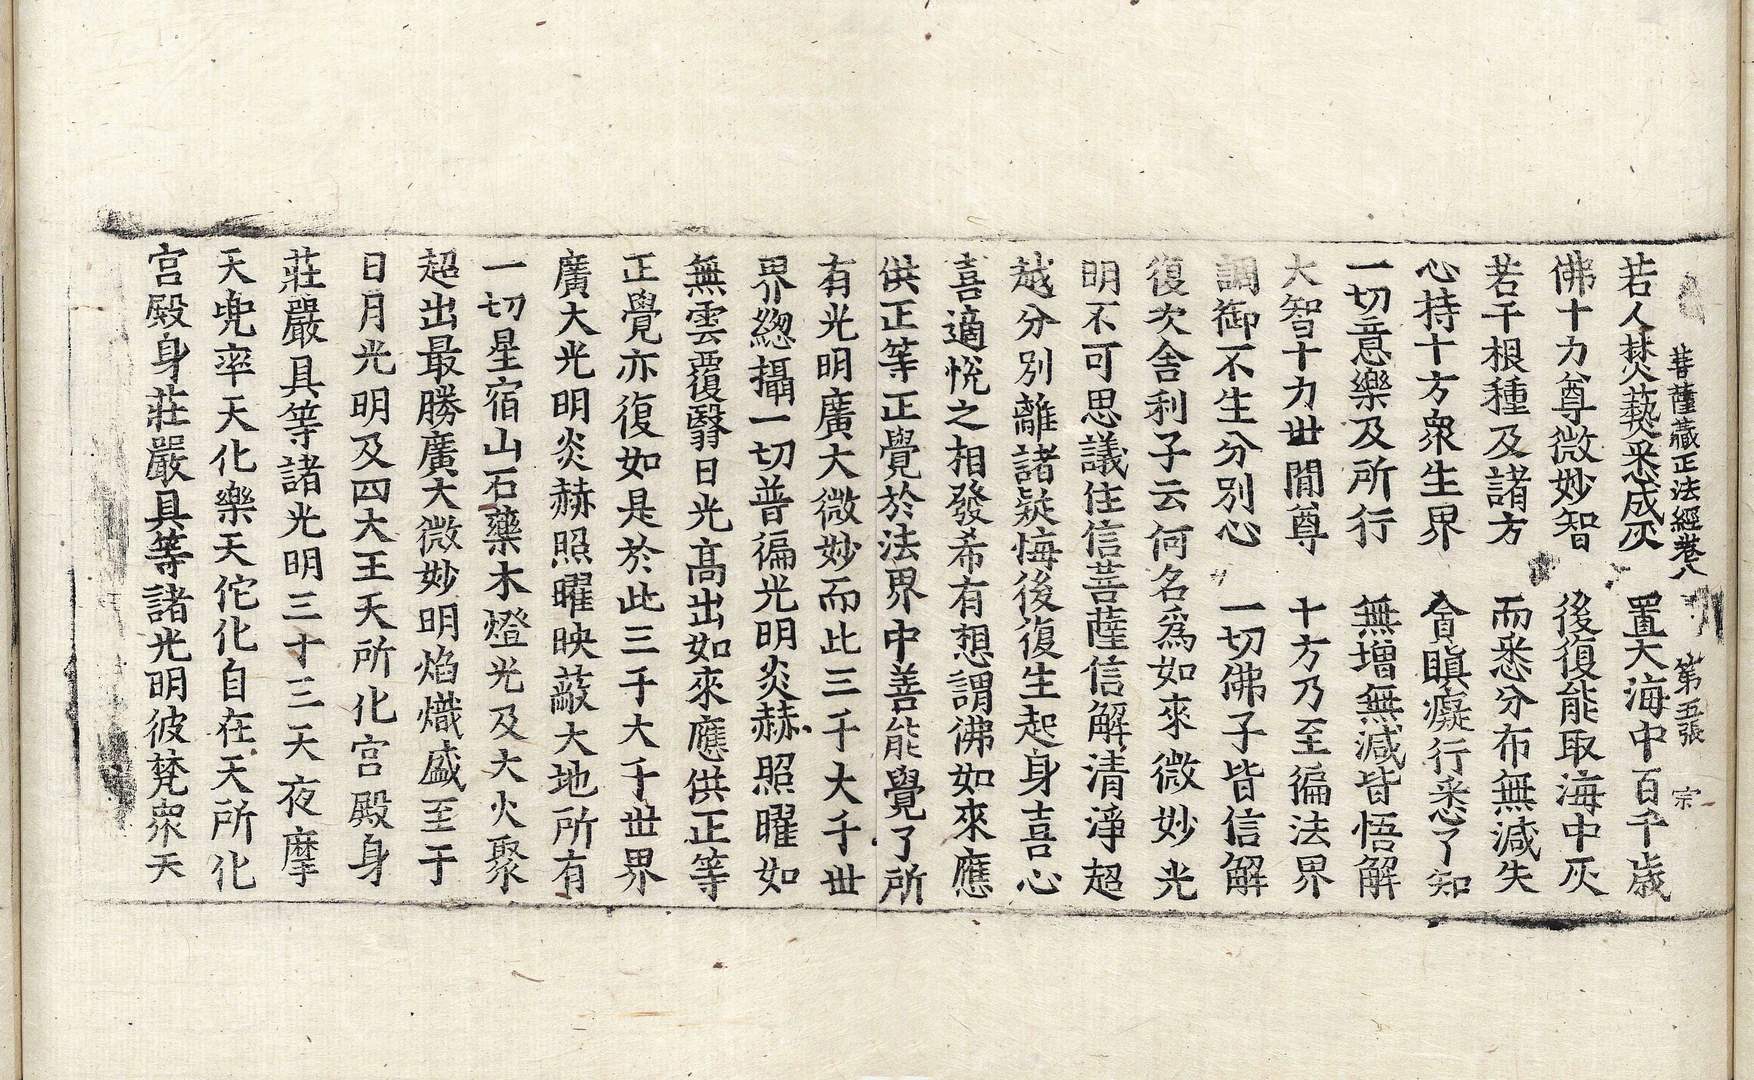 菩薩藏正法經卷八 第五張 宗
若人焚爇悉成灰 置大海中百千歲
佛十力尊微妙智 後復能取海中灰
若干根種及諸方 而悉分布無減失
心持十方衆生界 貪瞋癡行悉了知
一切意樂及所行 無增無減皆悟解
大智十力世閒尊 十方乃至徧法界
調御不生分別心 一切佛子皆信解
復次舍利子云何名爲如來微妙光
明不可思議住信菩薩信解清淨超
越分別離諸疑悔後復生起身喜心
喜適悅之相發希有想謂佛如來應
供正等正覺於法界中善能覺了所
有光明廣大微妙而此三千大千世
界緫攝一切普徧光明炎赫照曜如
無雲覆翳日光高出如來應供正等
正覺亦復如是於此三千大千世界
廣大光明炎赫照曜映蔽大地所有
一切星宿山石藥木燈光及大火聚
超出最勝廣大微妙明焰熾盛至于
日月光明及四大王天所化宮殿身
莊嚴具等諸光明三十三天夜摩
天兜率天化樂天佗化自在天所化
宮殿身莊嚴具等諸光明彼梵衆天